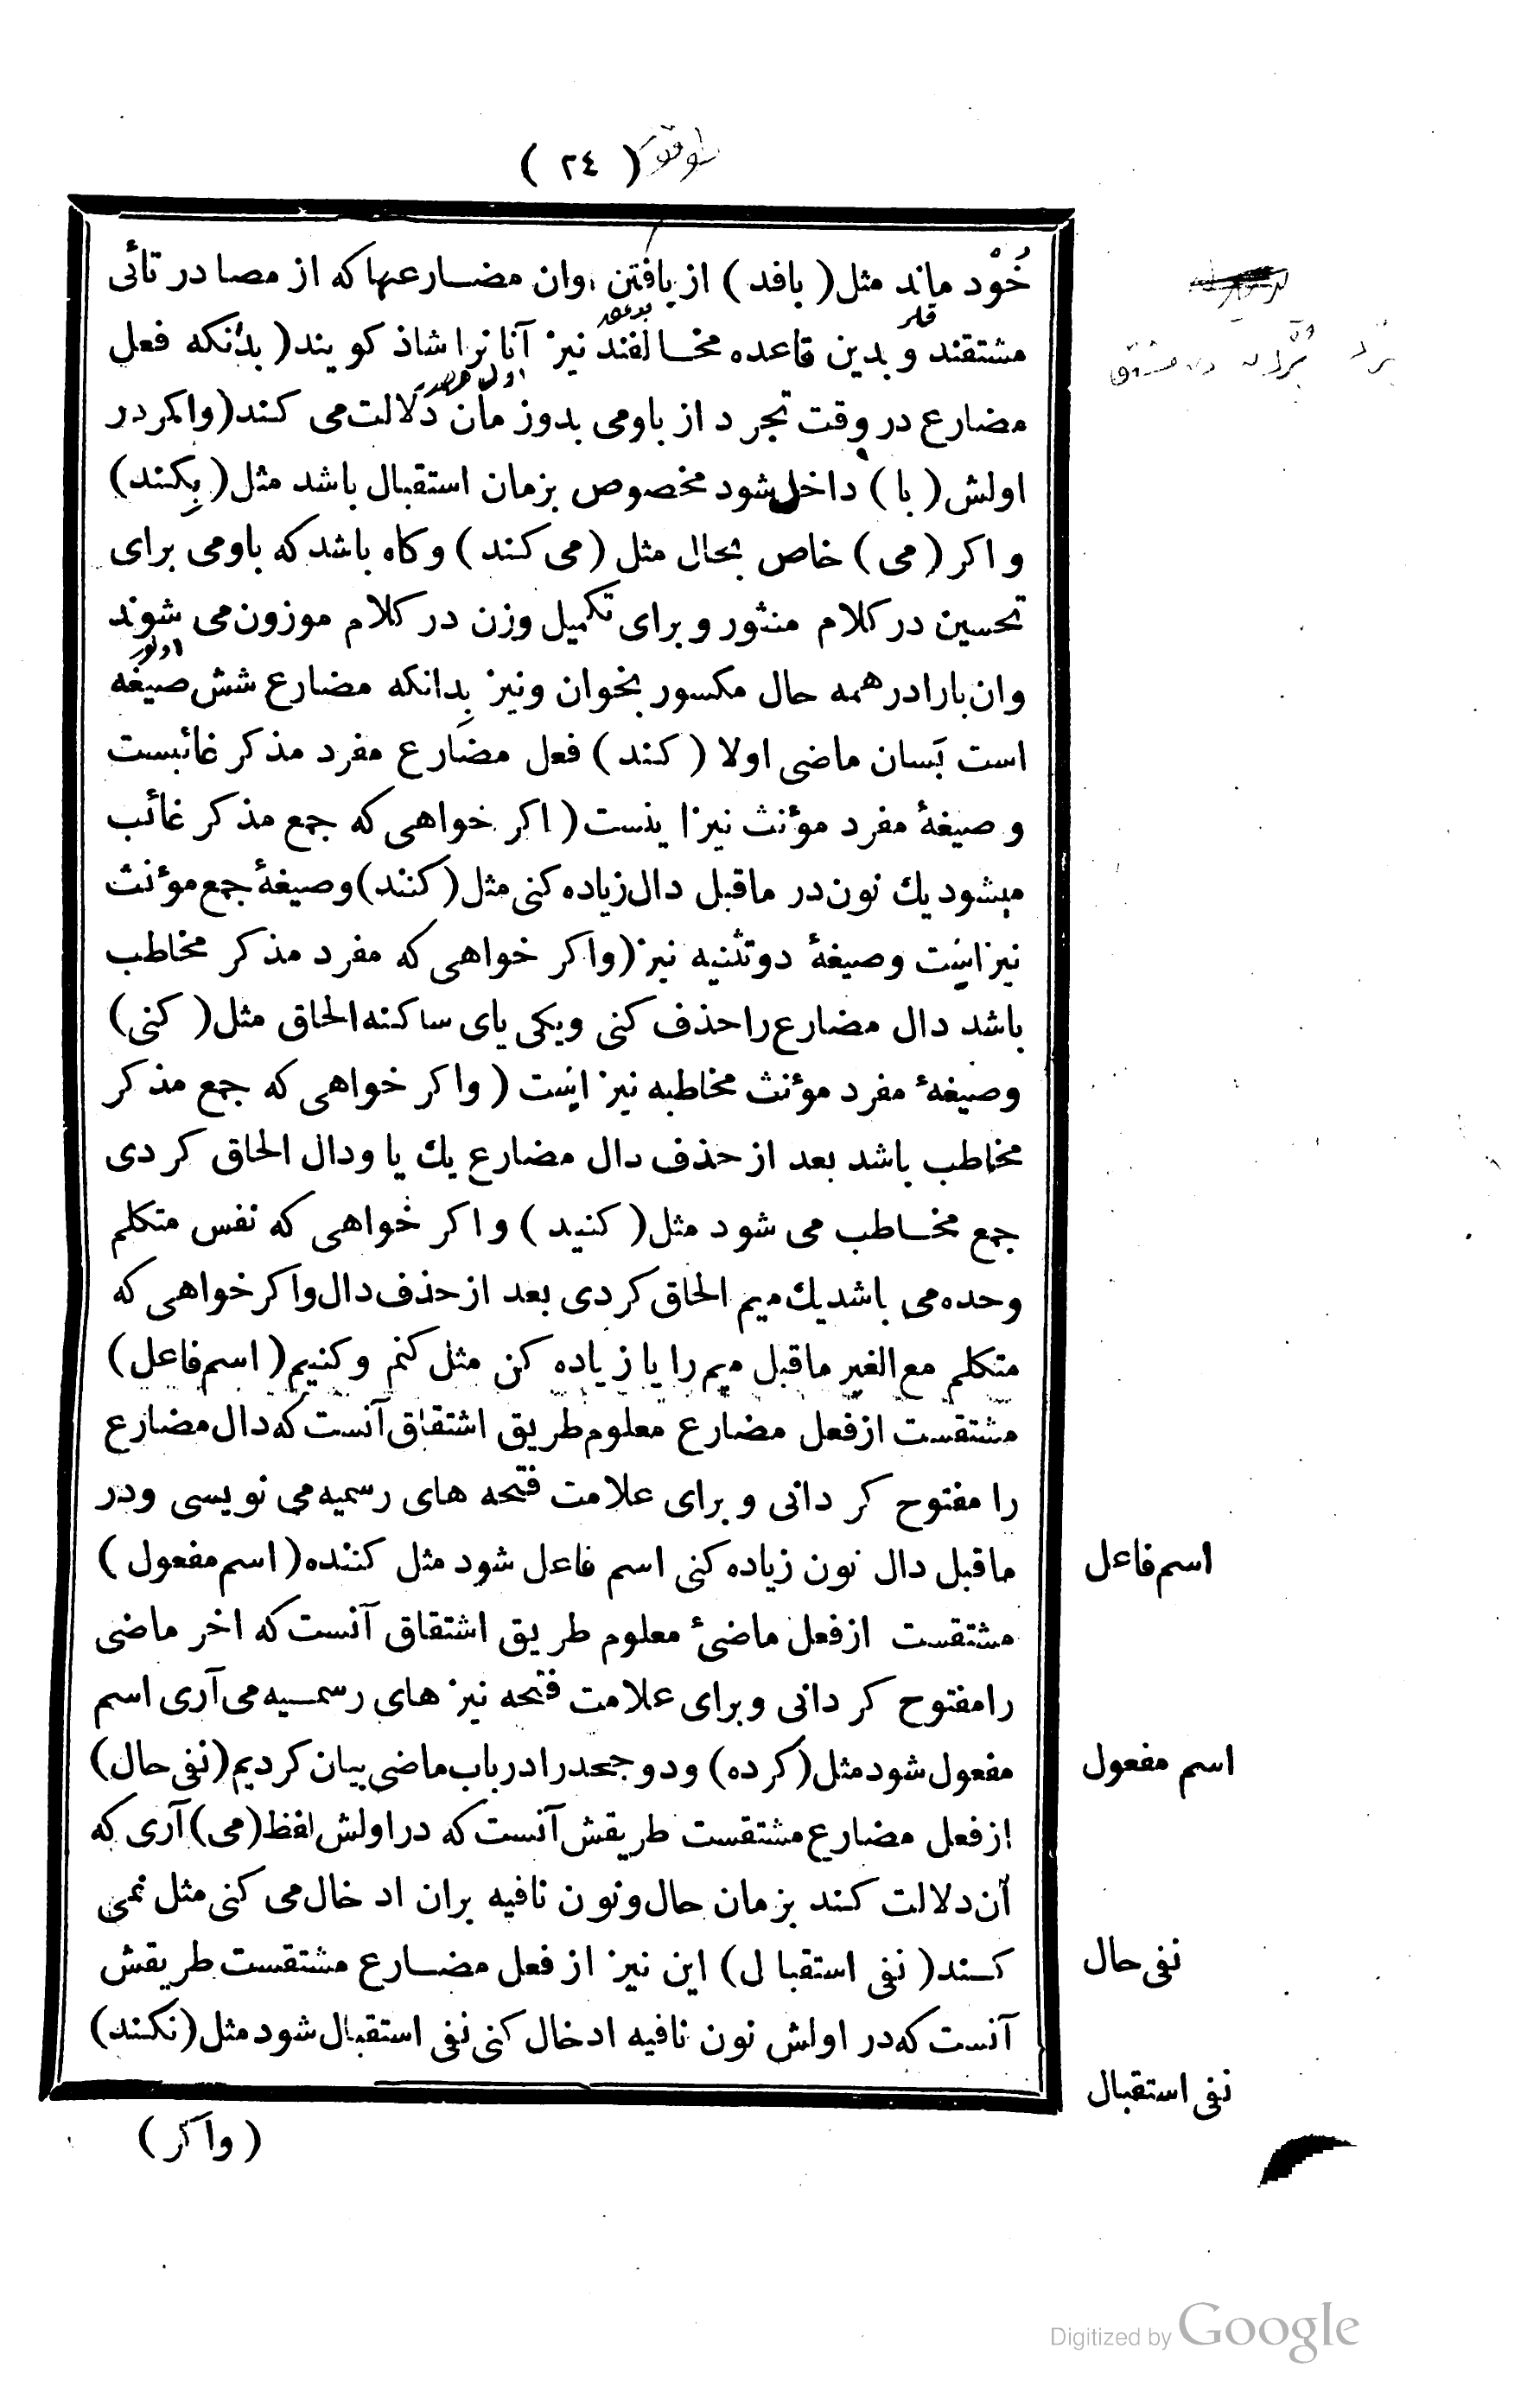 ( ٢٤ )
خُوْد ماند مثل ( بافد ) از بافتن وان مضارعها كه از مصادر تائى
مشتقند و بدين قاعده مخالفند نيز آنانرا شاذ كويند ( بدانكه فعل
مضارع در وقت تجرد از باومى بدوزمان دلالت مى كند ( واكر در
اولش ( با ) داخل شود مخصوص بزمان استقبال باشد مثل ( بِكند )
و اكر ( مى ) خاص بحال مثل ( مى كند ) وكاه باشد كه باومى براى
تحسين در كلام منثور و براى تكميل وزن در كلام موزون مى شوند
وان بارا در همه حال مكسور بخوان ونيز بِدانكه مضارع شش صيغه
است بَسان ماضى اولا ( كند ) فعل مضارع مفرد مذكر غائبست
و صيغۀ مفرد مؤنث نيز اينست ( اكر خواهى كه جمع مذكر غائب
ميشود يك نون در ماقبل دال زياده كنى مثل ( كنند ) وصيغۀ جمع مؤنث
نيز اينست وصيغۀ دوتثنيه نيز ( واكر خواهى كه مفرد مذكر مخاطب
باشد دال مضارع را حذف كنى ويكى ياى ساكنه الحاق مثل ( كنى )
وصيغۀ مفرد مؤنث مخاطبه نيز اينست ( واكر خواهى كه جمع مذكر
مخاطب باشد بعد از حذف دال مضارع يك يا ودال الحاق كردى
جمع مخاطب مى شود مثل ( كنيد ) واكر خواهى كه نفس متكلم
وحده مى باشد يك ميم الحاق كردى بعد از حذف دال واكر خواهى كه
متكلم مع الغير ماقبل ميم را يا زياده كن مثل كنم وكنيم ( اسم فاعل )
مشتقست از فعل مضارع معلوم طريق اشتقاق آنست كه دال مضارع
را مفتوح كردانى و براى علامت فتحه هاى رسميه مى نويسى ودر
ماقبل دال نون زياده كنى اسم فاعل شود مثل كننده ( اسم مفعول )
اسم فاعل
مشتقست از فعل ماضئ معلوم طريق اشتقاق آنست كه اخر ماضى
را مفتوح كردانى وبراى علامت فتحه نيز هاى رسميه مى آرى اسم
مفعول شود مثل ( كرده ) ودو جحد را در باب ماضى بيان كرديم ( نفى حال )
اسم مفعول
از فعل مضارع مشتقست طريقش آنست كه در اولش لفظ ( مى ) آرى كه
آن دلالت كند بزمان حال ونون نافيه بران ادخال مى كنى مثل نمى
كند ( نفى استقبال ) اين نيز از فعل مضارع مشتقست طريقش
نفى حال
آنست كه در اولش نون نافيه ادخال كنى نفى استقبال شود مثل ( نكند )
نفى استقبال
( واكر )
Digitized by Google